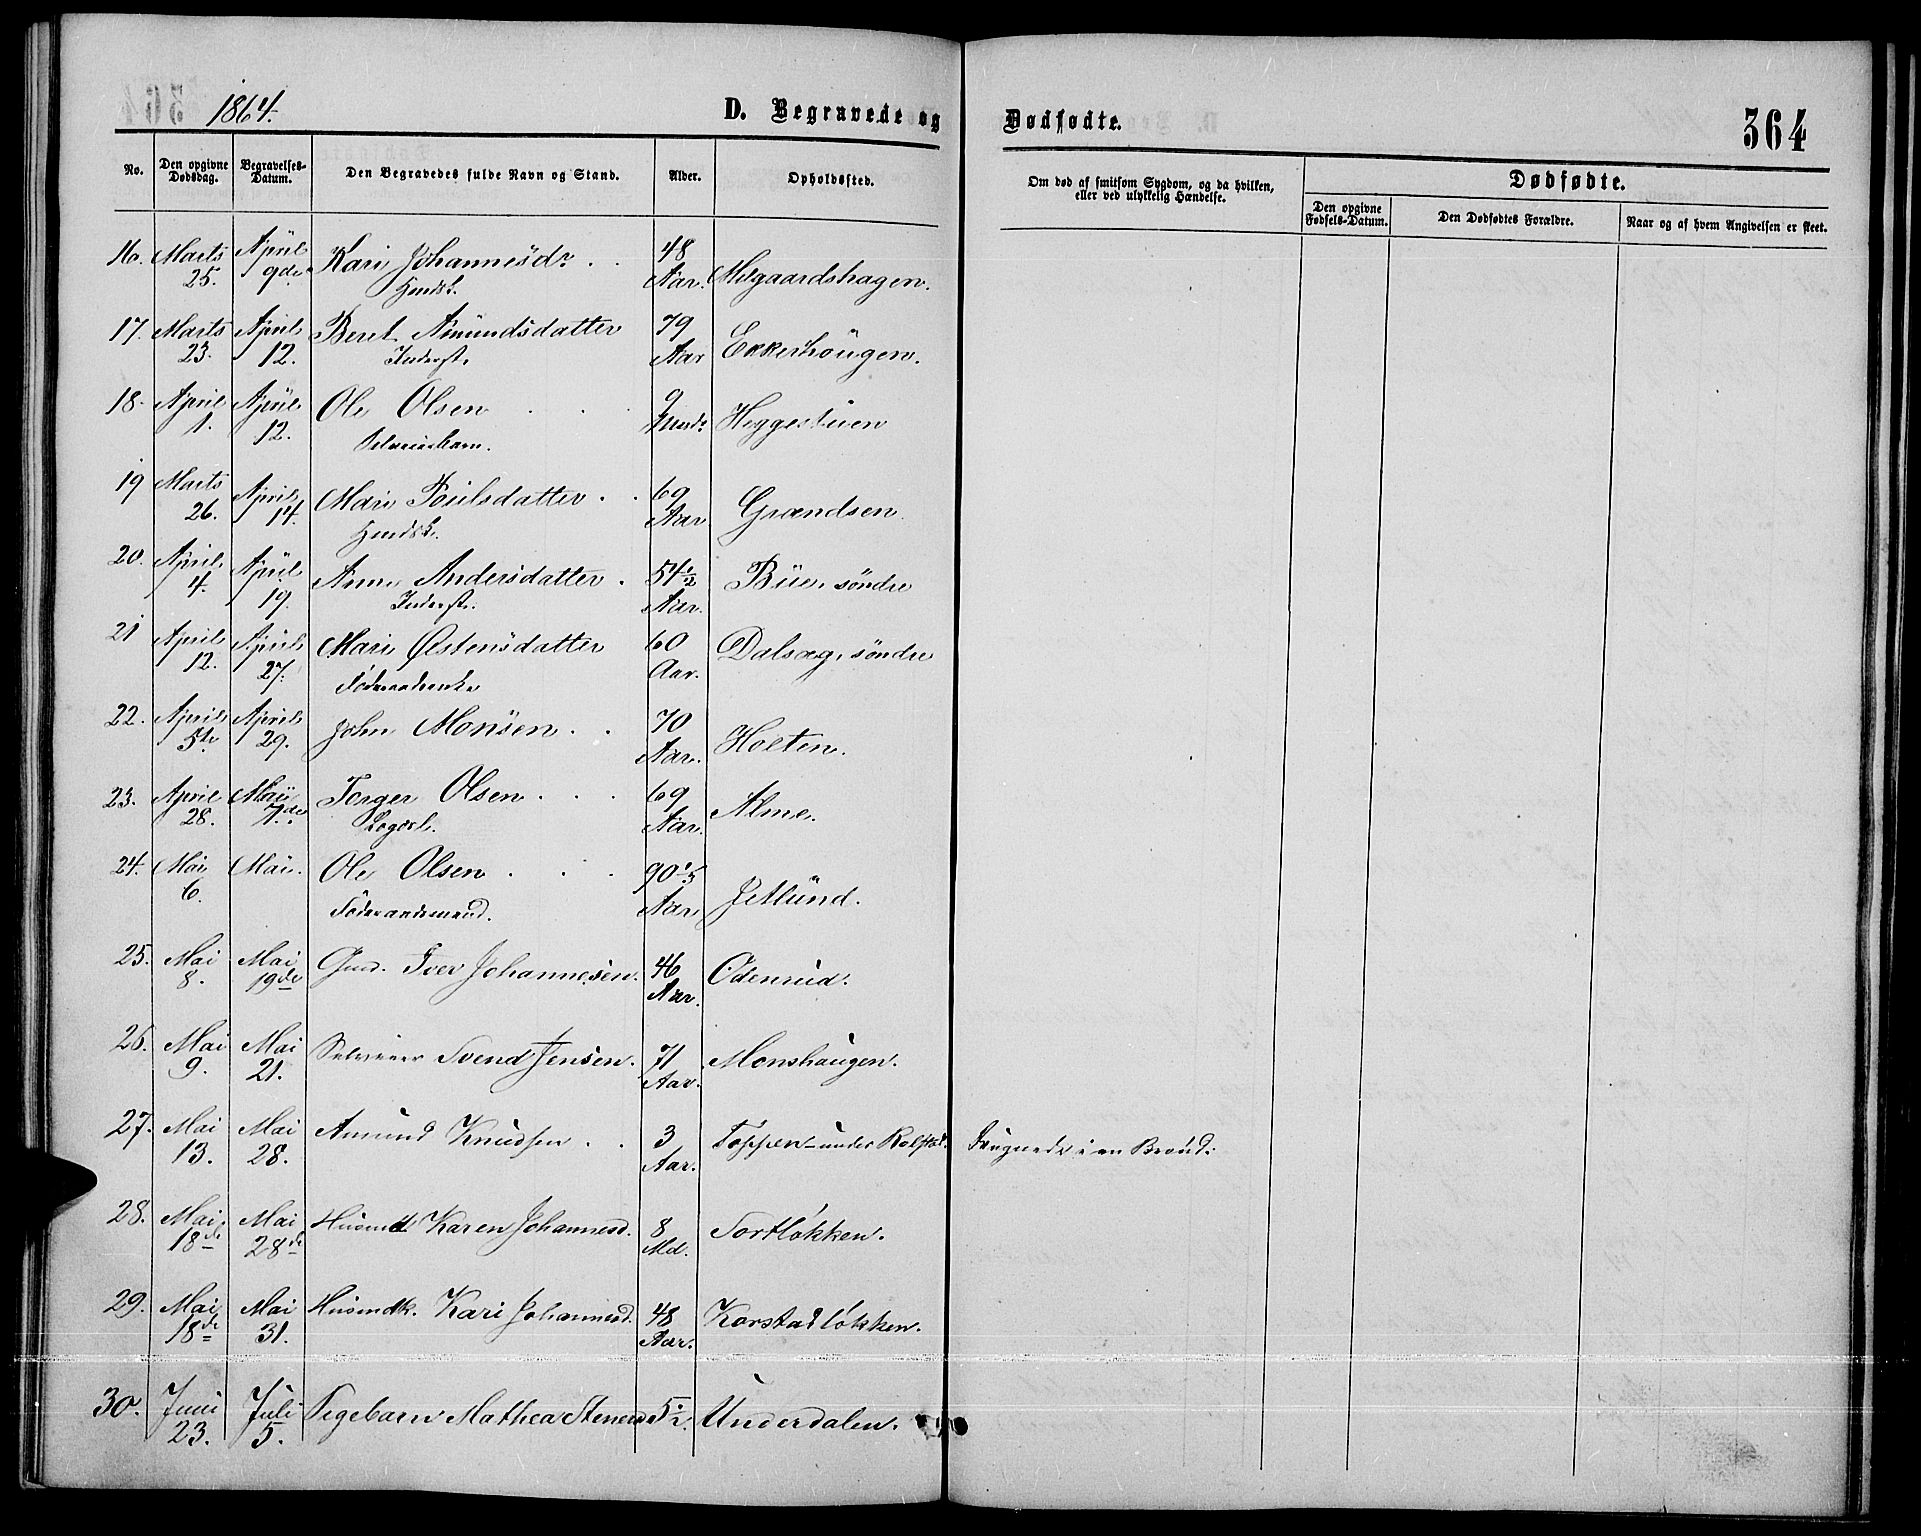 1864.
D. Begravede og Dødfødte. 364
No. Den opgivne Dødsdag. Begravelses-Datum. Den Begravedes fulde Navn og Stand. Alder. Opholdssted. Om død af smitsom Sygdom, og da hvilken, eller ved ulykkelig Hændelse. Dødfødte.
Den opgivne Fødsels-Datum. Den Dødfødtes Forældre. Naar og af hvem Angivelsen er skeet.
16. Marts April Kari Johannesdr 48
25. 9de Aar. Melgaardshagen.
17. Marts April Beret Amundsdatter 79
23. 12. Inderst. Aar Ekkerhougen.
18. April April Ole Olsen 9
1. 12. Mndr Heggestuen
19 Marts April Mari Poulsdatter 69
26. 14. Aar Grændsen
20. April April Anne Andersdatter 54½
4. 19. Inderst. Aar. Bue, søndre
21 April April Mari Østensdatter 60
12. 27. Føderaadsenke Aar. Dalseg, søndre
22. April April John Monsen 70
5te 29. Aar. Holten.
23. April Mai Torger Olsen 69
28. 7de Logdsl. Aar. Alme.
24. Mai Mai. Ole Olsen 90
6. Føderaadsmand. Aar Jetlund.
25. Mai Mai Gmd. Iver Johannesen. 46
8. 19de Aar. Odenrud.
26. Mai Mai Selveier Svend Jensen. 71
9. 21. Aar. Monshaugen.
27. Mai Mai Amund Knudsen 3 Toppen under Rolfstad. Druknede i en Brønd.
13. 28. Aar.
28. Mai Mai Husmd Karen Johannesd. 8
18de 28de Md. Sortløkken.
29. Mai Mai Husmdk. Kari Johannesd. 48 Korstadløkken.
18de 31. Aar.
30. Juni Juli Pigebarn Mathea Stenersd 5½ Underdalen.
23. 5.